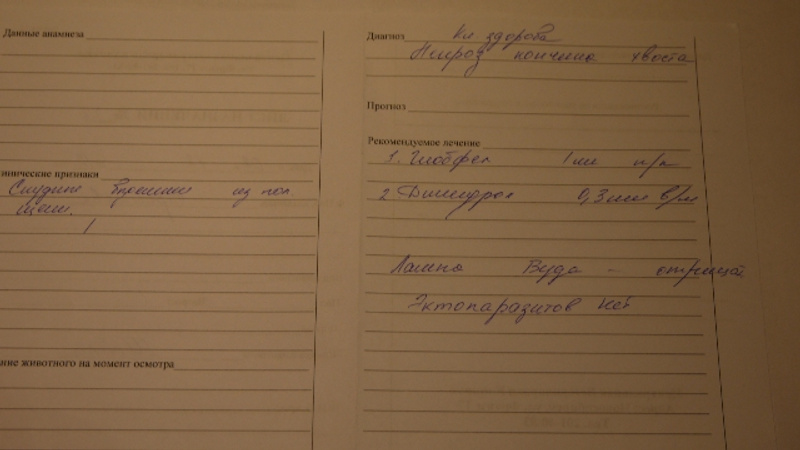 Данные анамнеза
инические признаки
из пол
ние животного на момент осмотра
Диагноз Кл здорова
Некроз кончика хвоста
Прогноз
Рекомендуемое лечение
1. Глобфел 1 мл п/к
2 Димедрол 0,3 мл в/м
Лампа Вуда - отрицат
Эктопаразитов нет